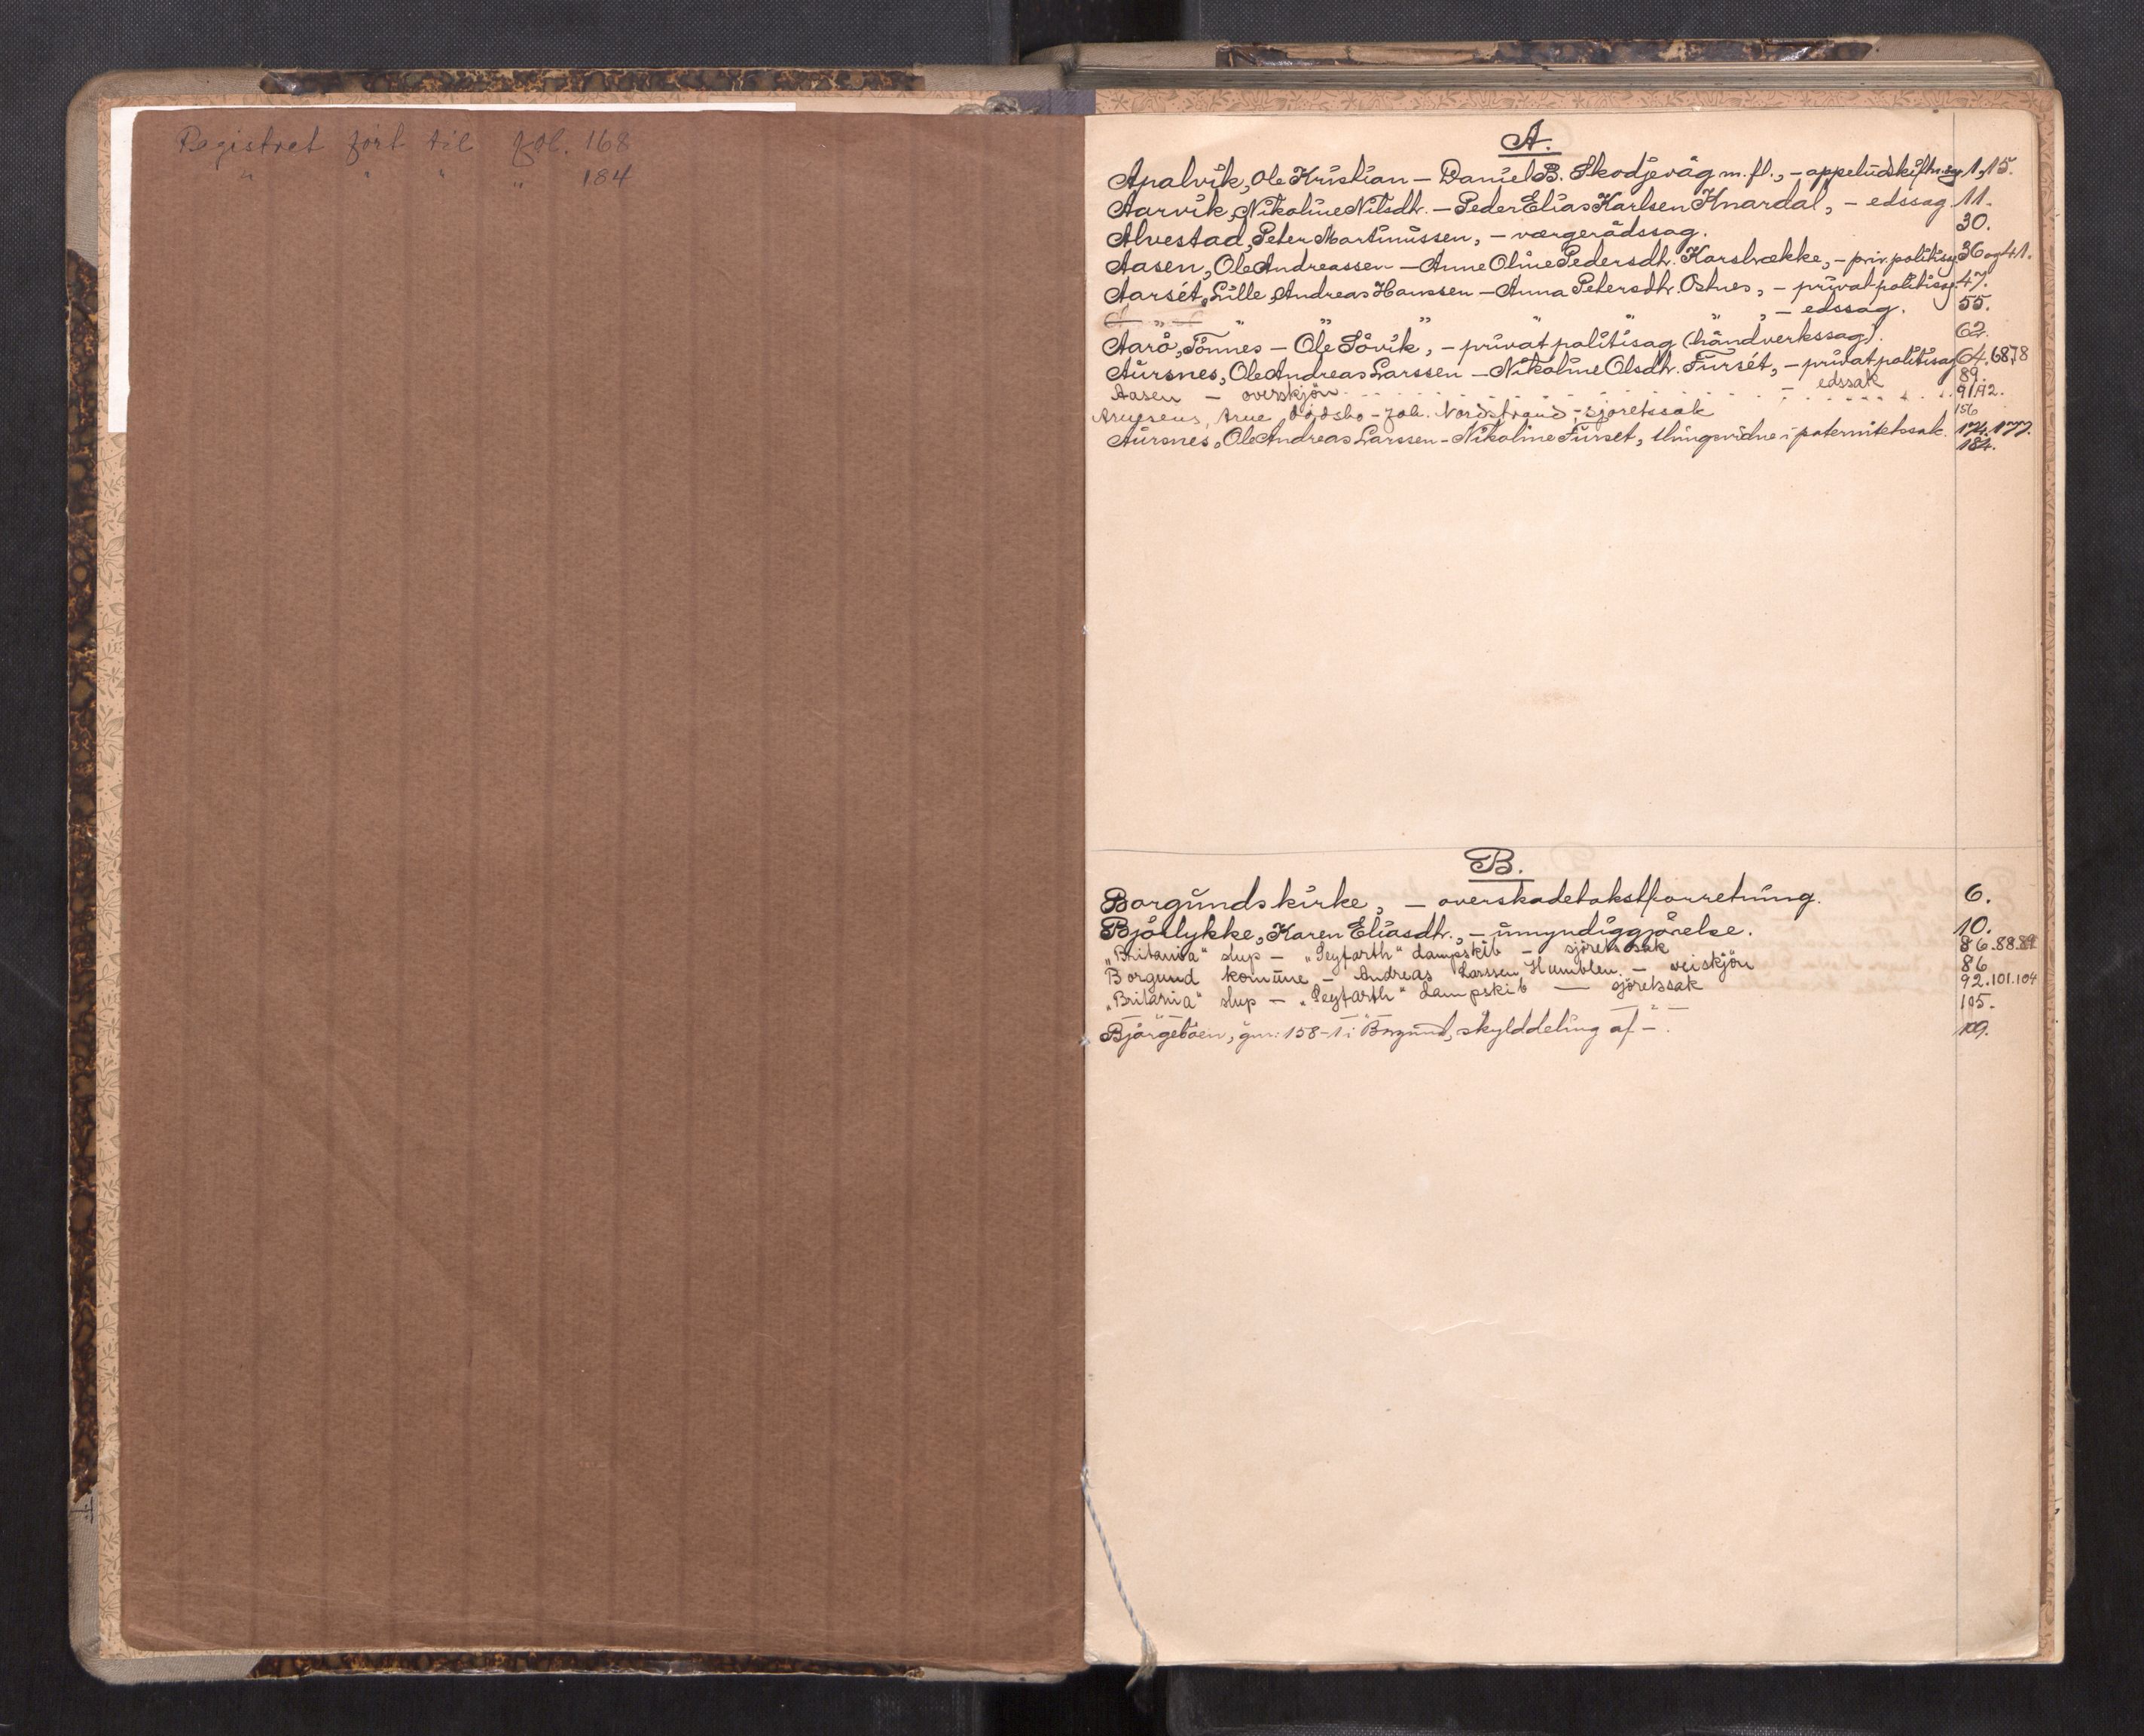 Registret ført til fol. 168
" " " " 184
A.
Apalvik, Ole Kristian – Daniel B. Skodjevåg m. fl., – appeludskiftn.sag 1, 15.
Aarvik, Nikoline Nilsdtr. – Peder Elias Karlsen Knardal, – edssag 11.
Alvestad, Peter Martinussen, – værgerådssag. 30.
Aasen, Ole Andreassen – Anne Oline Pedersdtr. Karsbrække, – priv. politisag 36 og 41.
Aarsét, Lille, Andreas Hanssen – Anna Petersdtr. Östnes, – privat politisag. 47.
" " " " " , – edssag. 55.
Aarö, Tönnes – Ole Sövik, – privat politisag (håndverkssag). 62.
Aursnes, Ole Andreas Larssen – Nikoline Olsdtr. Fursét, – privat politisag 64. 68. 78
– edssak 89.
Aasen – overskjön 91, 92.
Arnesens, Arne, dödsbo – Joh. Nordstrand, – sjöretssak 156
Aursnes, Ole Andreas Larssen – Nikoline Furset, thingsvidne i paternitetssak. 174. 177.
184.
B.
Borgunds kirke, – overskadetakstforretning. 6.
Bjórlykke, Karen Eliasdtr., – umyndiggjörelse. 10.
„Britania" slup – „Seyfarth" dampskib – sjöretssak 86. 88. 89
Borgund komune – Andreas Larssen Humblen. – veiskjön 86
„Britania" slup – „Seyfarth" dampskib — sjöretssak 92. 101. 104
– " – – " – – " – 105.
Bjørgebøen, gnr. 158–1 i Borgund, skylddeling af –. 109.